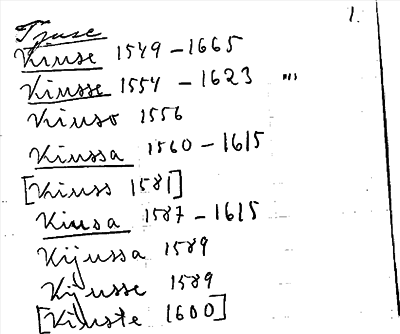 1.
Tjuse
Kiuse 1549-1665
Kiusse 1554-1623 "'
Kiuso 1556
Kiussa 1560-1615
[Kiuss 1581]
Kiusa 1587-1615
Kijussa 1589
Kijusse 1589
[Kiuste 1600]